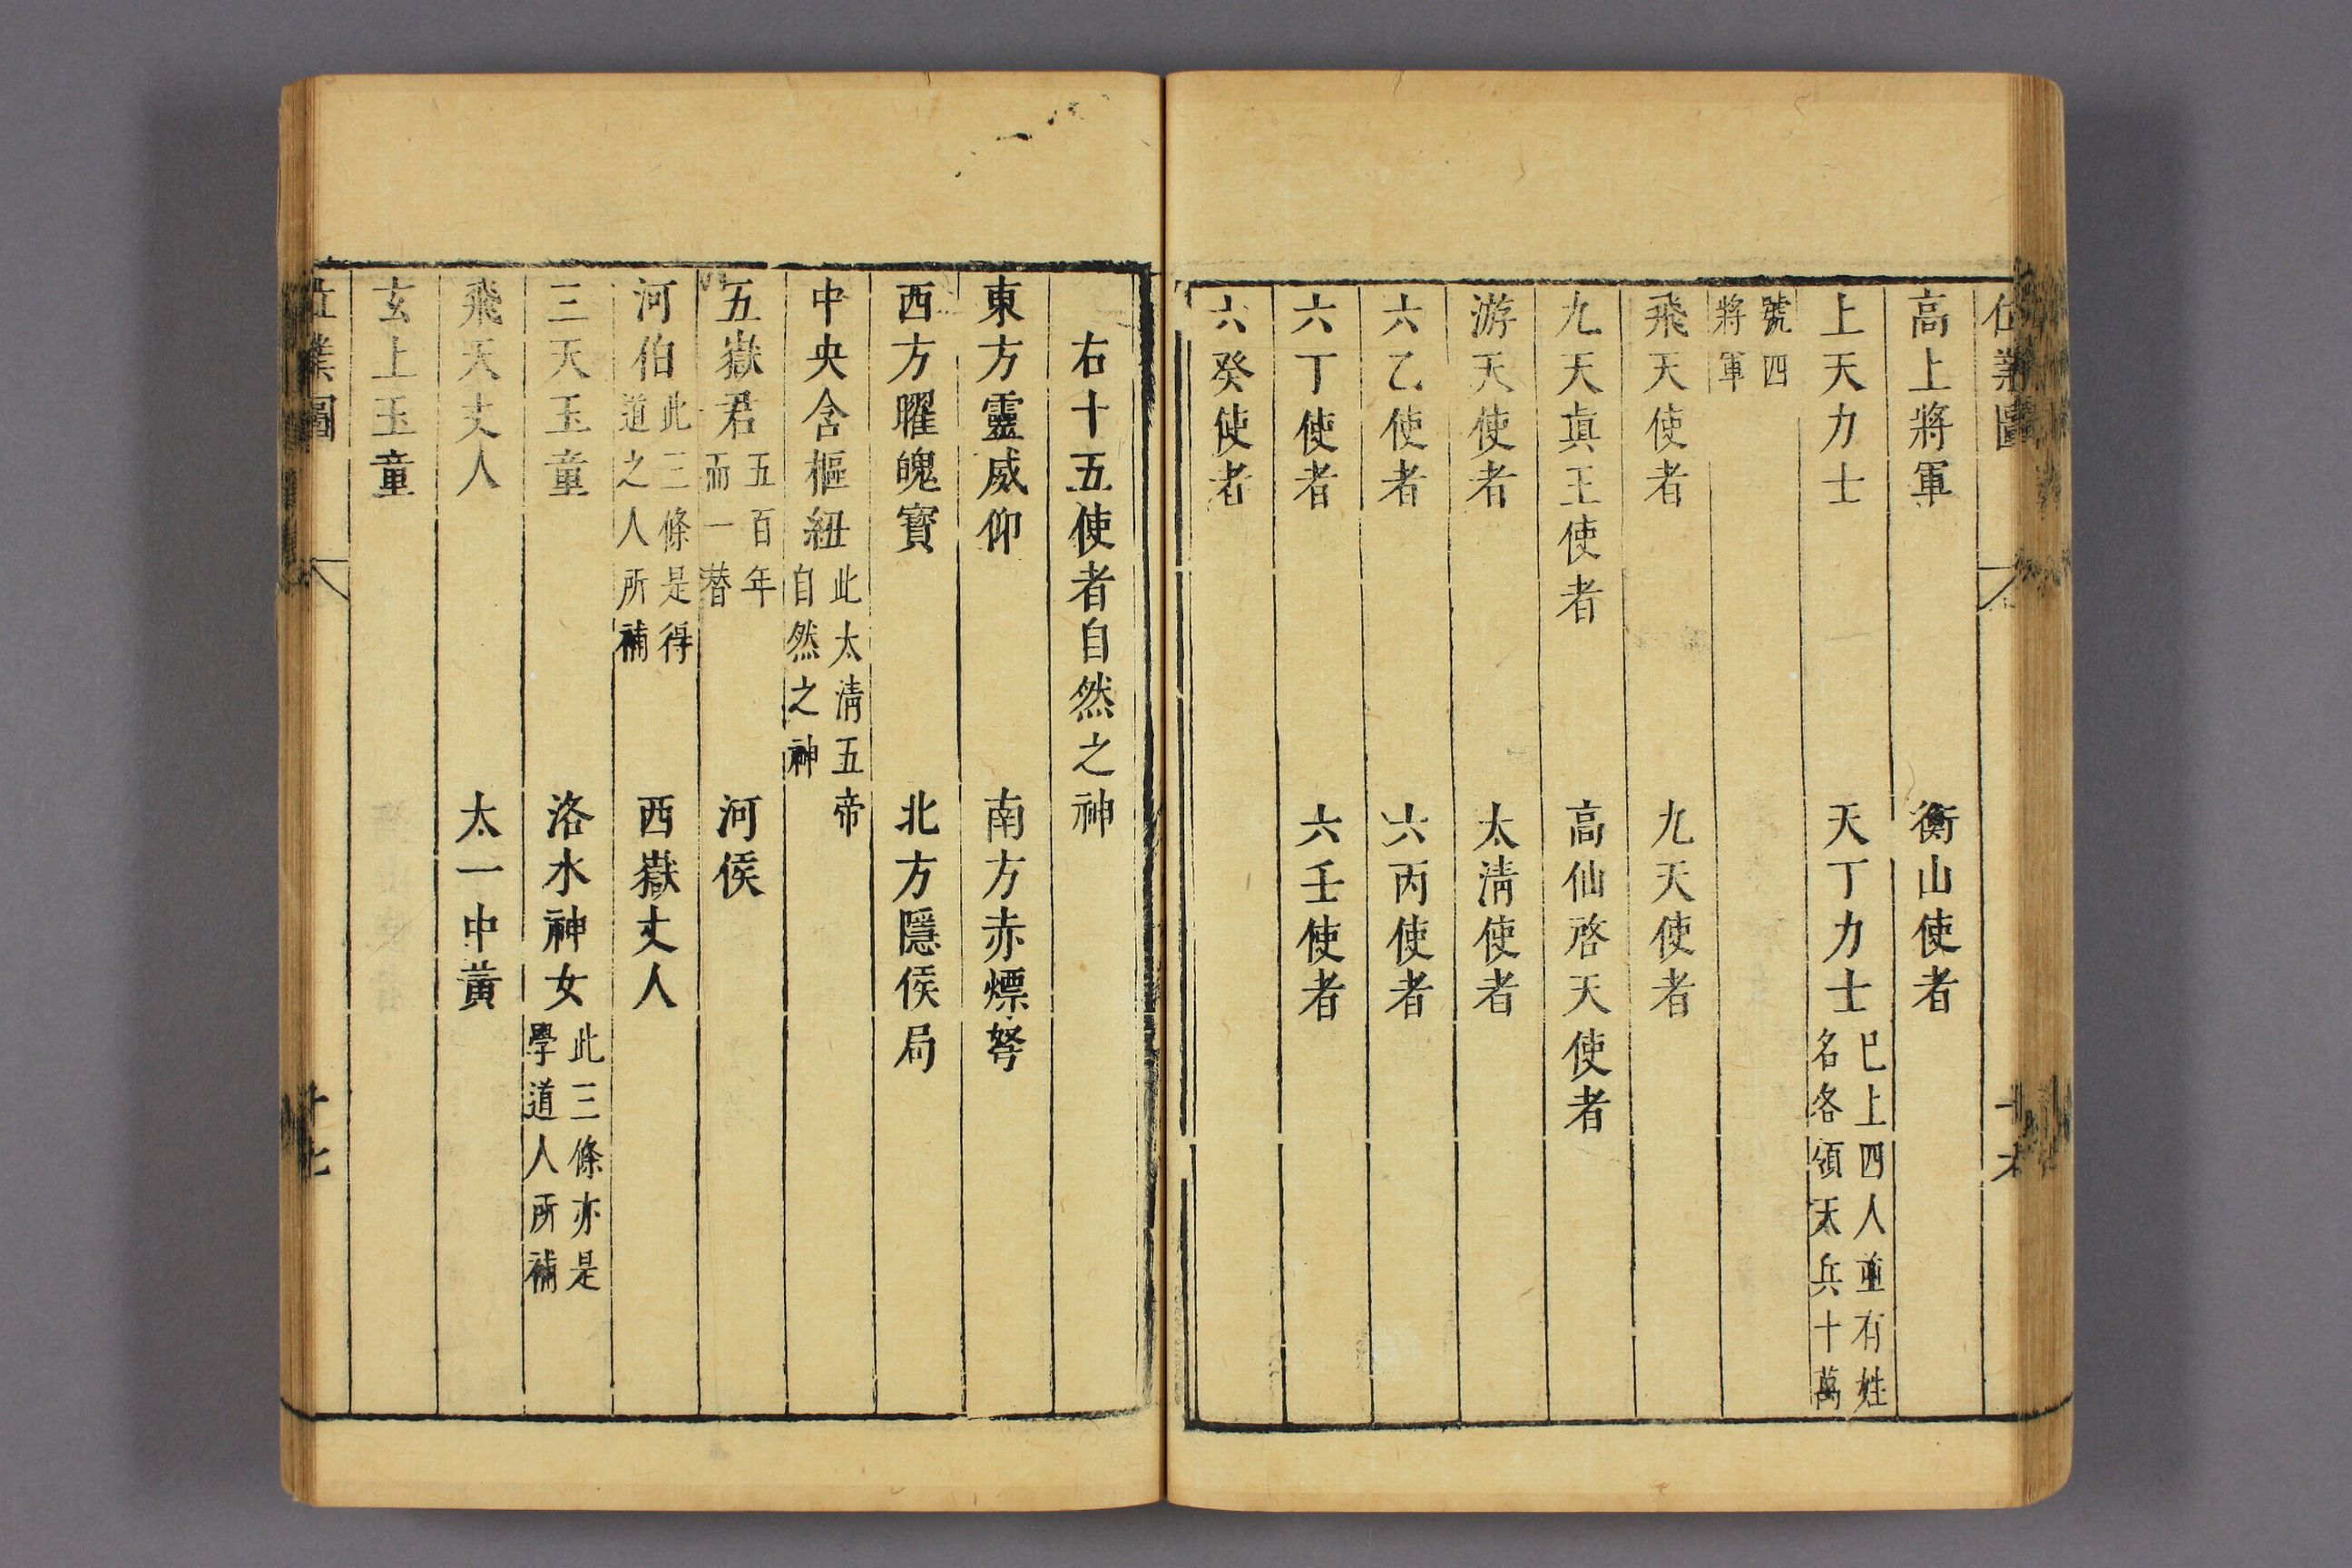 高上將軍　衡山使者
上天力士　天丁力士巳上四人並有姓名各領天兵十萬
號四將軍
飛天使者　九天使者
九天眞王使者　高仙啓天使者
游天使者　太淸使者
六乙使者　六丙使者
六丁使者　六壬使者
六癸使者
右十五使者自然之神
東方靈威仰　南方赤熛弩
西方曜魄寶　北方隱侯局
中央含樞紐此太淸五帝自然之神
五嶽君五百年而一替　河侯
河伯此三條是得道之人所補　西嶽丈人
三天玉童　洛水神女此三條亦是學道人所補
飛天丈人　太一中黃
玄上玉童